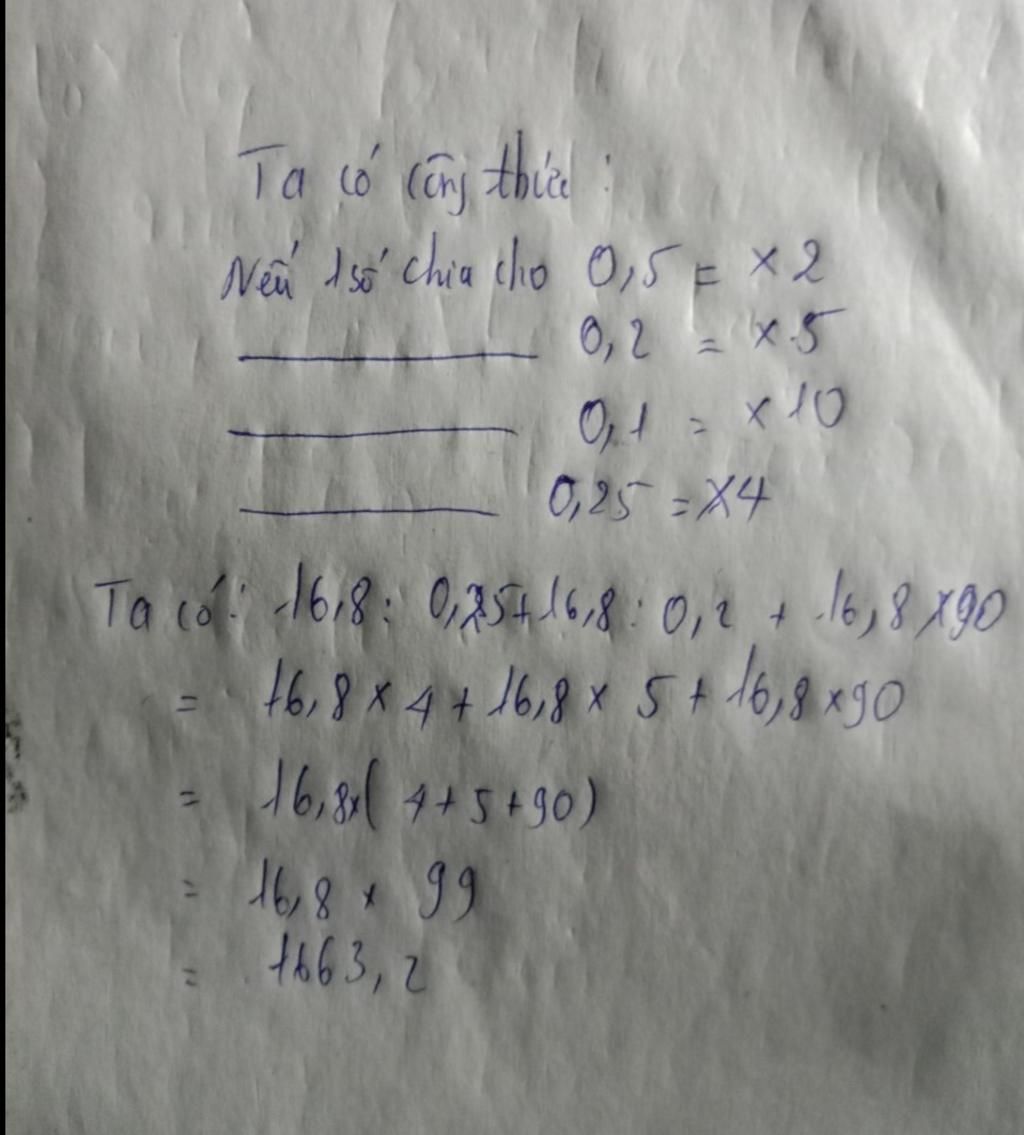 Ta có công thức :
Nếu 1 số chia cho 0,5 = x 2
0,2 = x 5
0,1 = x 10
0,25 = x 4
Ta có : 16,8 : 0,25 + 16,8 : 0,2 + 16,8 x 90
= 16,8 x 4 + 16,8 x 5 + 16,8 x 90
= 16,8 x ( 4 + 5 + 90 )
= 16,8 x 99
= 1663,2